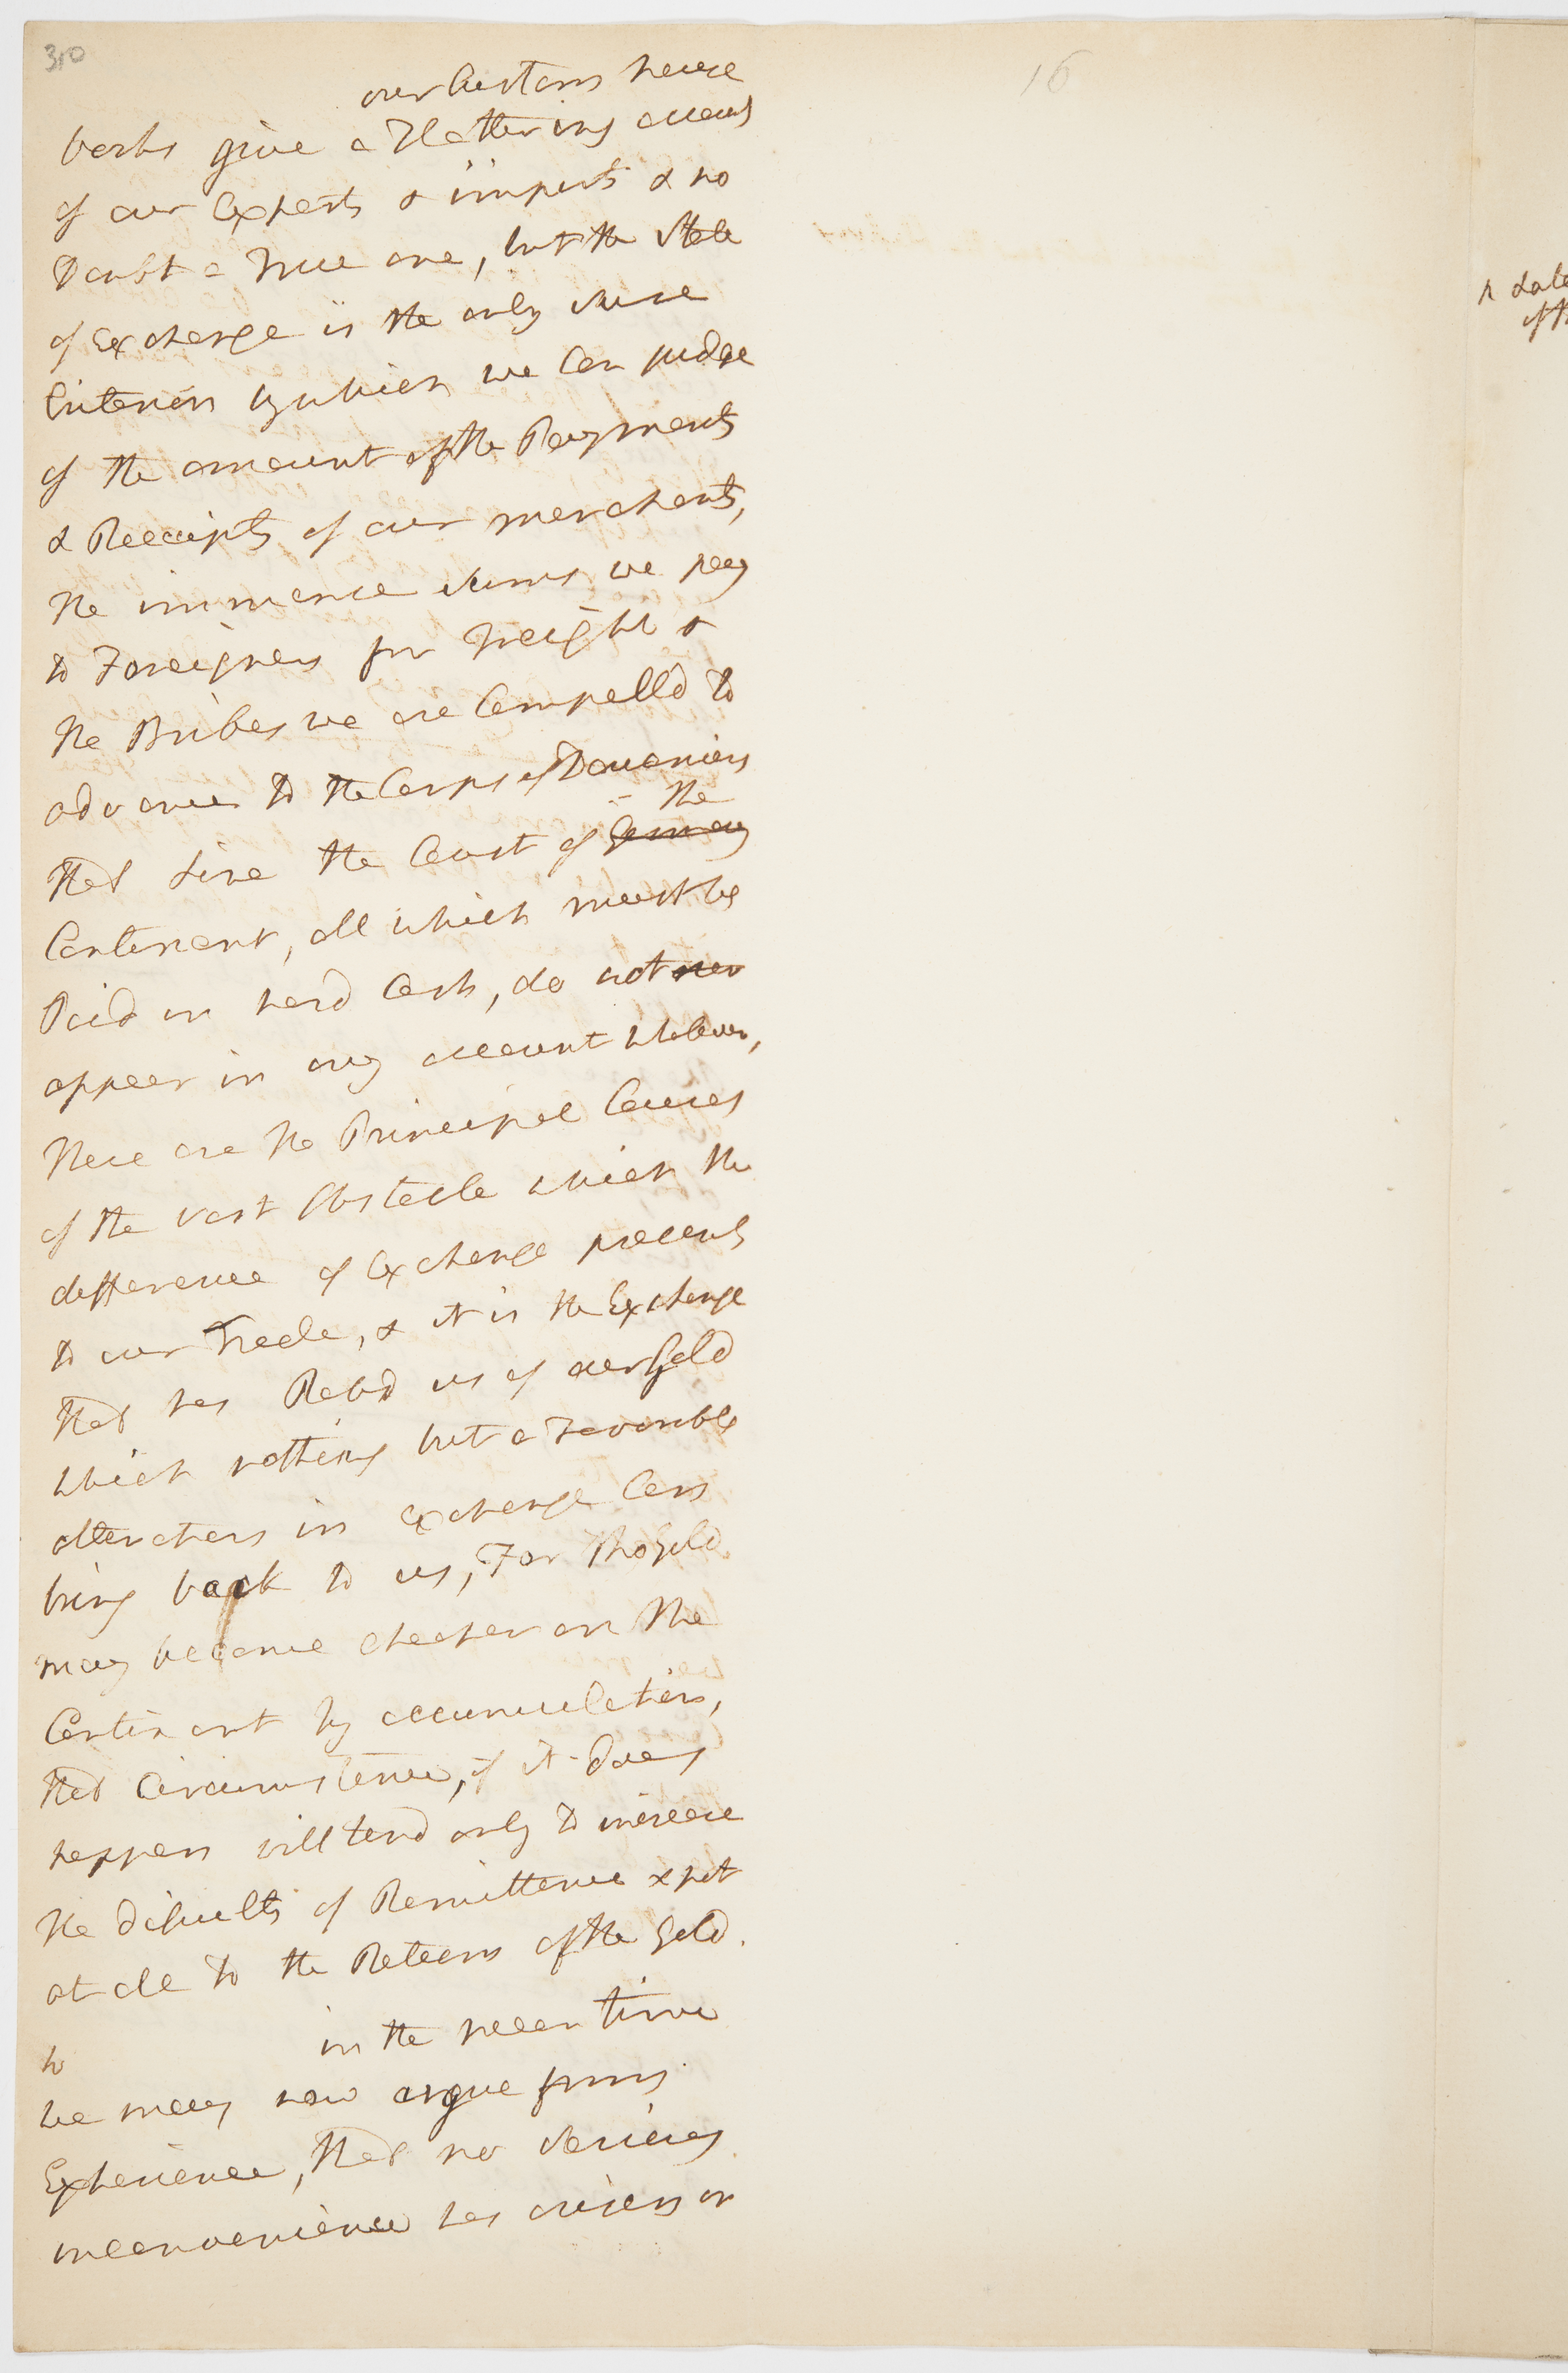 310
16
our Custom house
books give a Flattering account
of our Exports & imports & no
Doubt a True one, but the State
of Exchange is the only sure
Criterion by which we Can judge
of the amount of the Payments
& Receipts of our merchants,
the immence sums we pay
to Foreigners for Freight &
the Bribes we are Compelld to
advance to the Corps of Douaniers
that Line the Coast of Germany the
Continent, all which must be
Paid in hard Cash, do not
appear in any account whatever,
these are the Principal Causes
of the vast Obstacle which the
difference of Exchange presents
to our Trade, & it is the Exchange
that has Robd us of our Gold
which nothing but a Favorable
alteration in Exchange Can
bring back to us, For tho Gold
may become cheaper on the
Continent by accumulation,
that Circumstance, if it does
happen will tend only to increase
the dificulty of Remittance & not
at all to the Return of the Gold.
in the mean time
we may now argue from
Experience, that no serious
inconvenience has arisen or